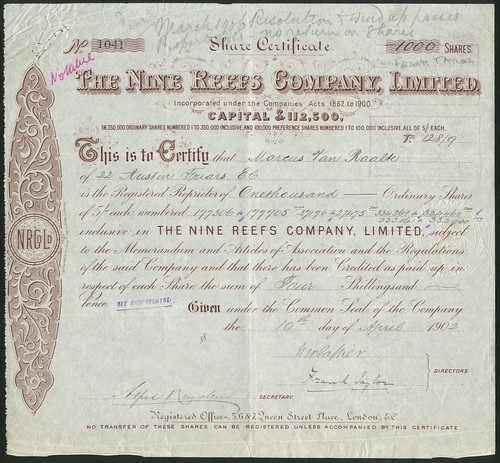 March 1908 Resolution to wind up passed
no return on Shares
No value
No 1041 Share Certificate. 1000 SHARES.
THE NINE REEFS COMPANY, LIMITED.
Incorporated under the Companies' Acts 1862 to 1900.
CAPITAL £112,500,
IN 350,000 ORDINARY SHARES NUMBERED 1 TO 350,000 INCLUSIVE, AND 100,000 PREFERENCE SHARES NUMBERED 1 TO 100,000 INCLUSIVE, ALL OF 5/- EACH.
T. 1281/9
This is to Certify that Marcus Van Raalte
of 22 Austin Friars E.C.
is the Registered Proprietor of One thousand Ordinary Shares
of 5/- each numbered
inclusive in THE NINE REEFS COMPANY, LIMITED, subject
to the Memorandum and Articles of Association and the Regulations
of the said Company and that there has been Credited as paid up in
respect of each Share the sum of Four Shillings and
Pence. SEE ENDORSEMENT.
Given under the Common Seal of the Company
the 10th day of April 1902
Frank Taylor
DIRECTORS.
SECRETARY.
Registered Offices, 5, 6 & 7 Queen Street Place, London, E.C.
NO TRANSFER OF THESE SHARES CAN BE REGISTERED UNLESS ACCOMPANIED BY THIS CERTIFICATE
NRCLD